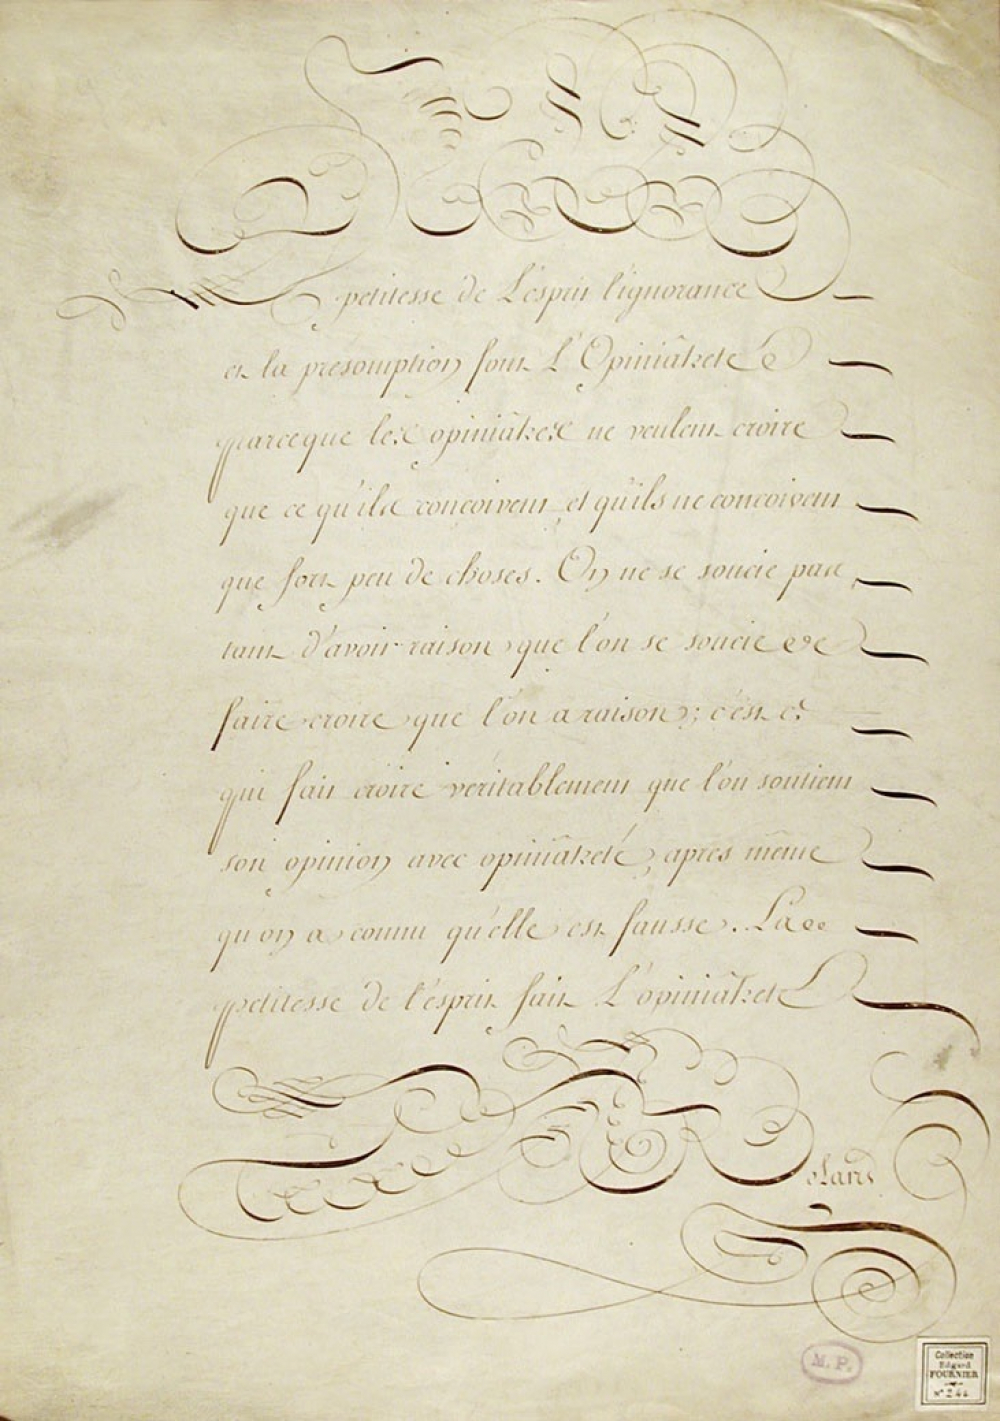 La petitesse de L'esprit l'ignorance
et la présomption font L'Opiniâtreté
parceque les opiniâtres ne veulent croire
que ce qu'ils concoivent et qu'ils ne concoivent
que fort peu de choses. On ne se soucie pas
tant d'avoir raison que l'on se soucie de
faire croire que l'on a raison; c'est ce
qui fait croire véritablement que l'on soutient
son opinion avec opiniâtreté, après même
qu'on a connu qu'elle est fausse. La
petitesse de l'esprit fait L'opiniâtreté
Roland
M. P.
Collection
Edgard
FOURNIER
N° 244